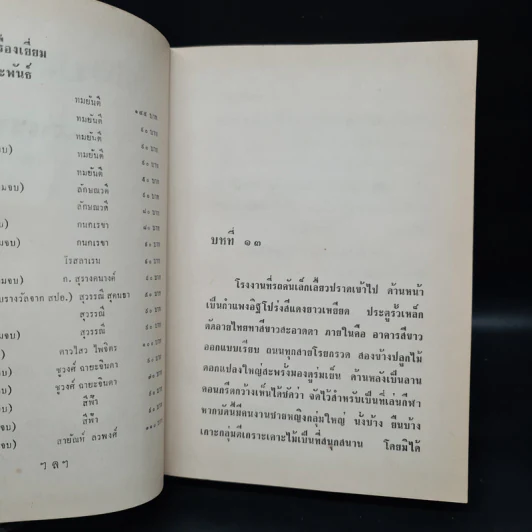 รื่องเยี่ยม
ะพันธ์
ทมยันตี ๑๙๕ บาท
ทมยันตี ๘๐ บาท
ทมยันตี ๘๐ บาท
จบ) ทมยันตี ๘๐ บาท
ทมยันตี ๕๐ บาท
มจบ) ลักษณวดี ๘๐ บาท
ลักษณวดี ๘๐ บาท
จบ) กนกเรขา ๘๐ บาท
มจบ) กนกเรขา ๘๐ บาท
โรสลาเรน ๘๐ บาท
มจบ) ก. สุรางคนางค์ ๘๐ บาท
บรางวัลจาก สปอ.) สุวรรณี สุคนธา
สุวรรณี
มจบ) สุวรรณี
ดาวไสว ไพจิตร
จบ) ชูวงศ์ ฉายะจินดา
จบ) ชูวงศ์ ฉายะจินดา
สีฟ้า
มจบ) สีฟ้า
จบ) ลายัณห์ ลวพงศ์
ฯ ล ฯ
บทที่ ๑๓
โรงงานที่รถคันเล็กเลี้ยวปราดเข้าไป ด้านหน้า
เป็นกำแพงอิฐโปร่งสีแดงยาวเหยียด ประตูรั้วเหล็ก
ดัดลายไทยทาสีขาวสะอาดตา ภายในคือ อาคารสีขาว
ออกแบบเรียบ ถนนทุกสายโรยกรวด สองข้างปลูกไม้
ดอกแปลงใหญ่สะพรั่งมองดูร่มเย็น ด้านหลังเป็นลาน
คอนกรีตกว้างเห็นได้ชัดว่า จัดไว้สำหรับเป็นที่เล่นกีฬา
หากบัดนี้มีคนงานชายหญิงกลุ่มใหญ่ นั่งบ้าง ยืนบ้าง
เกาะกลุ่มตีเกราะเคาะไม้เป็นที่สนุกสนาน โดยมิได้